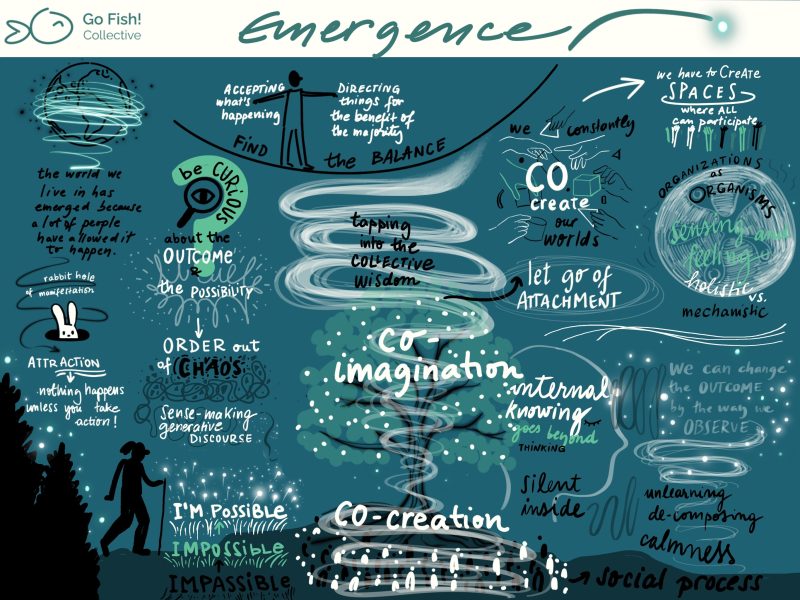 Go Fish!
Collective
Emergence
the world we
live in has
emerged because
a lot of people
have allowed it
to happen.
rabbit hole
of manifestation
ATTRACTION
nothing happens
unless you take
action!
ACCEPTING
what's
happening
DIRECTING
things for
the benefit of
the majority
FIND the BALANCE
be CURIOUS
about the
OUTCOME
&
the POSSIBILITY
ORDER out
of CHAOS
Sense-making
generative
DISCOURSE
I'M POSSIBLE
IMPOSSIBLE
IMPASSIBLE
tapping
into the
COLLECTIVE
WISDOM
co-
imagination
CO-creation
social process
we constantly
CO
create
our
worlds
let go of
ATTACHMENT
internal
knowing
goes beyond
THINKING
silent
inside
we have to create
SPACES
where ALL
can participate
ORGANIZATIONS
as
ORGANISMS
sensing and
feeling
holistic
vs.
mechanistic
We can change
the OUTCOME
by the way we
OBSERVE
unlearning
de-composing
calmness